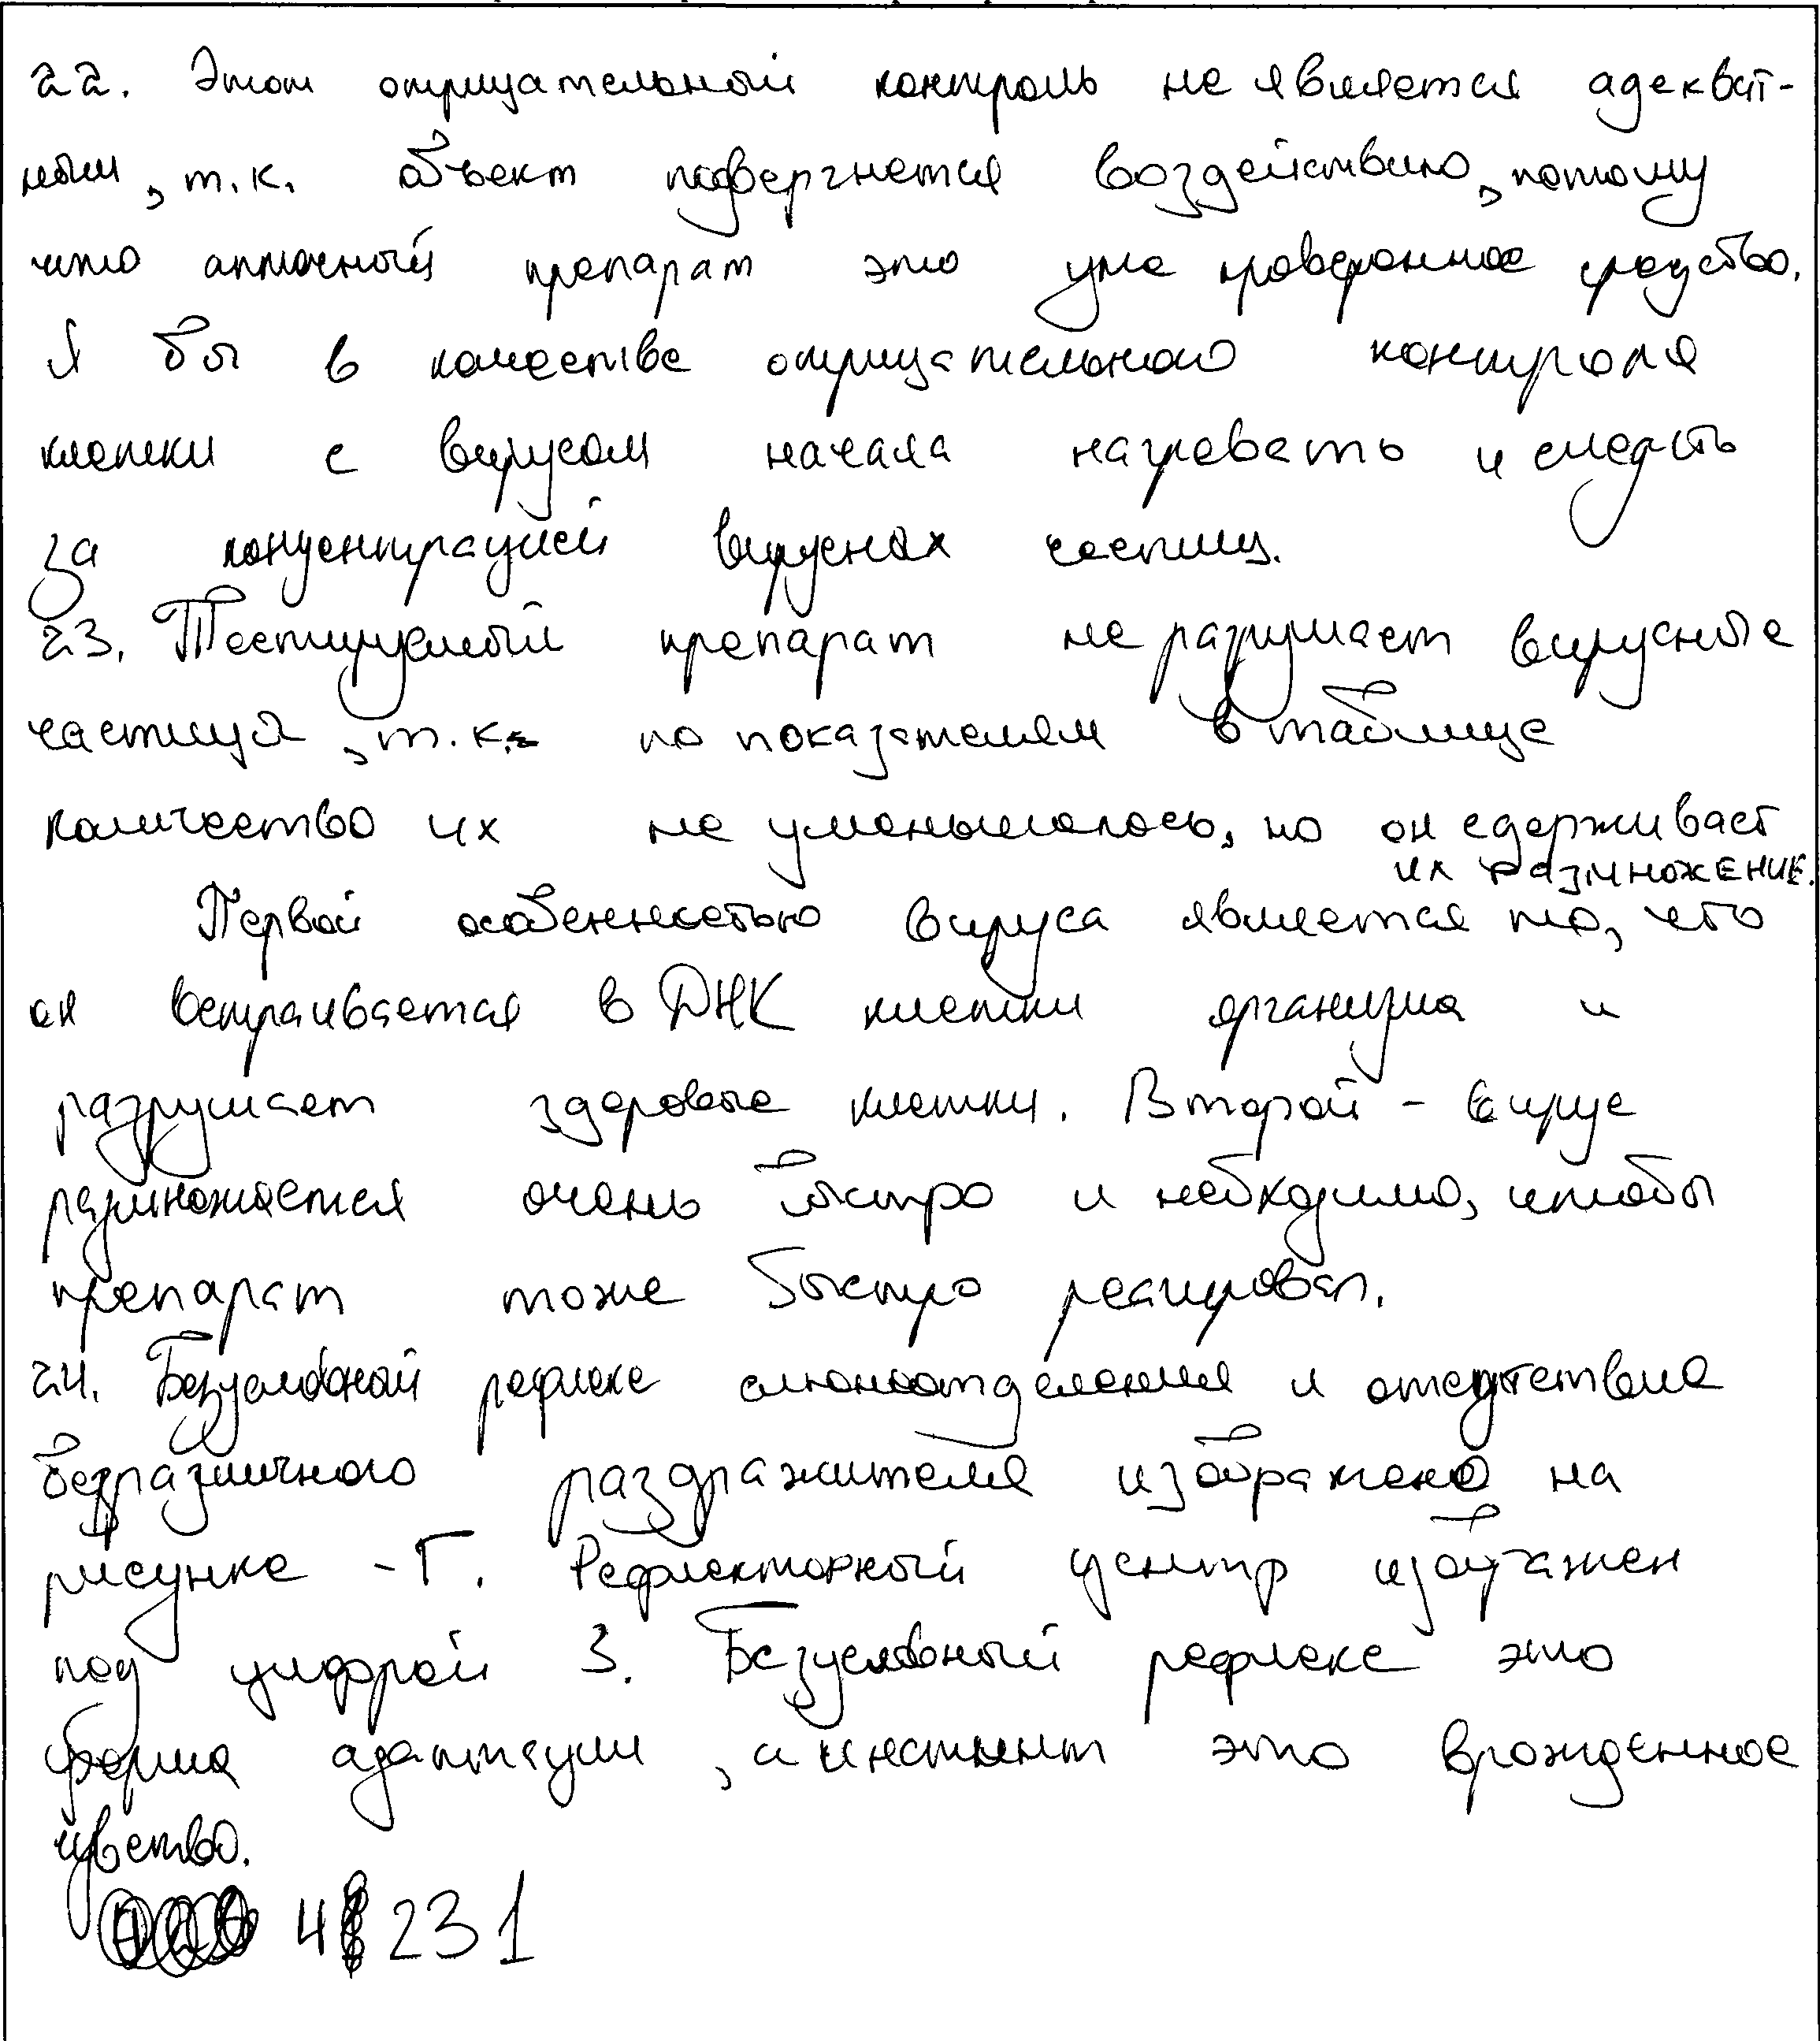 22. Этот отрицательный контроль не является адекват-
ным, т.к. объект подвергнется воздействию, потому
что аптечный препарат это уже проверенное средство.
Я бы в качестве отрицательного контроля
клетки с вирусом начала нагревать и следить
за концентрацией вирусных частиц.
23. Тестируемый препарат не разрушает вирусные
частицы, т.к. по показателям в таблице
количество их не уменьшалось, но он сдерживает
их размножение.
Первой особенностью вируса является то, что
он встраивается в ДНК клетки организма и
разрушает здоровые клетки. Второй - вирус
размножается очень быстро и необходимо, чтобы
препарат тоже быстро реагировал.
24. Безусловный рефлекс слюноотделения и отсутствие
безразличного раздражителя изображено на
рисунке - Г. Рефлекторный центр изображен
под цифрой 3. Безусловный рефлекс это
форма адаптации, а инстинкт это врожденное
чувство.
4 231